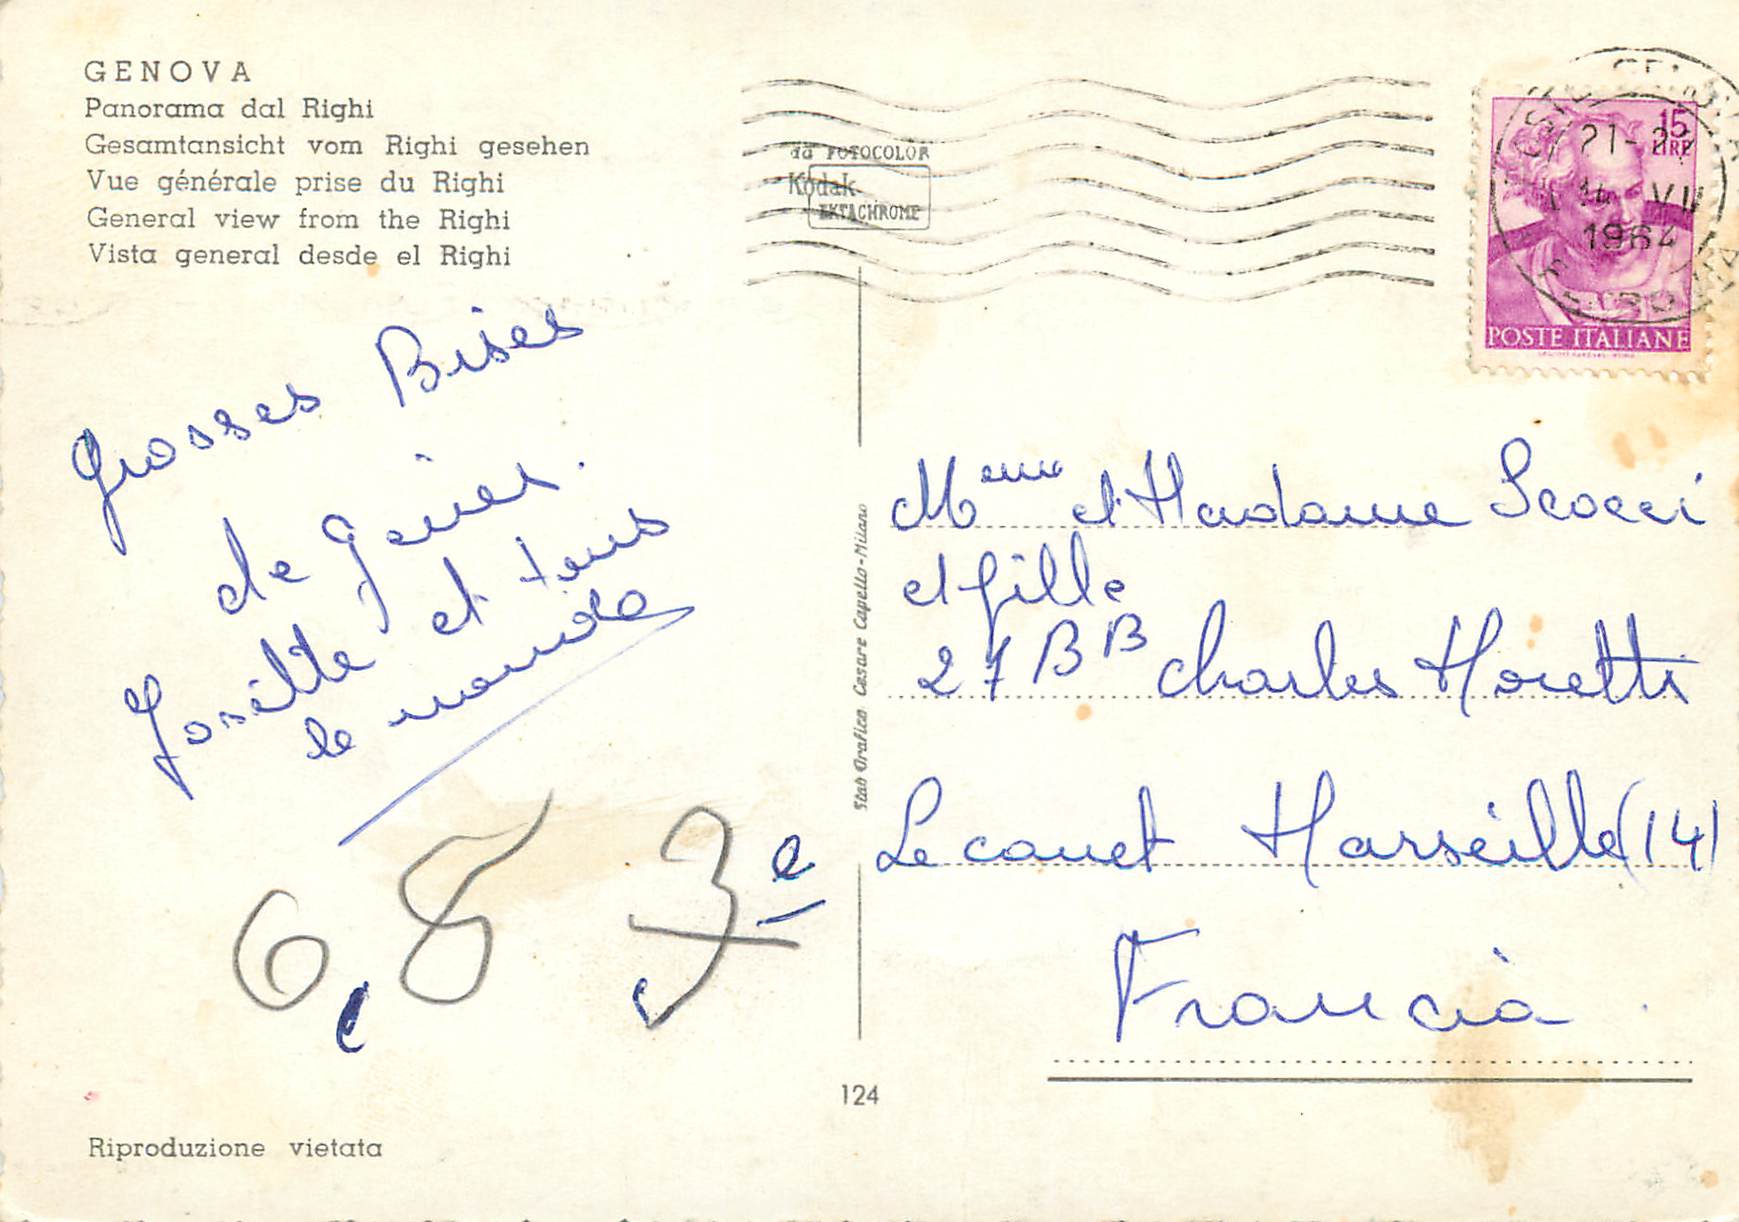 GENOVA
Panorama dal Righi
Gesamtansicht vom Righi gesehen
Vue générale prise du Righi
General view from the Righi
Vista general desde el Righi
da FOTOCOLOR
Kodak
EKTACHROME
15
LIRE
21-22
14 VII
1964
POSTE ITALIANE
Grosses Bises
de Gênes.
Josette et tous
le monde
6,8 3e
Meme et Madame Scocci
et fille
27 BB Charles Moretti
Le canet Marseille (14)
Francia
Stab Grafico Cesare Capello-Milano
124
Riproduzione vietata